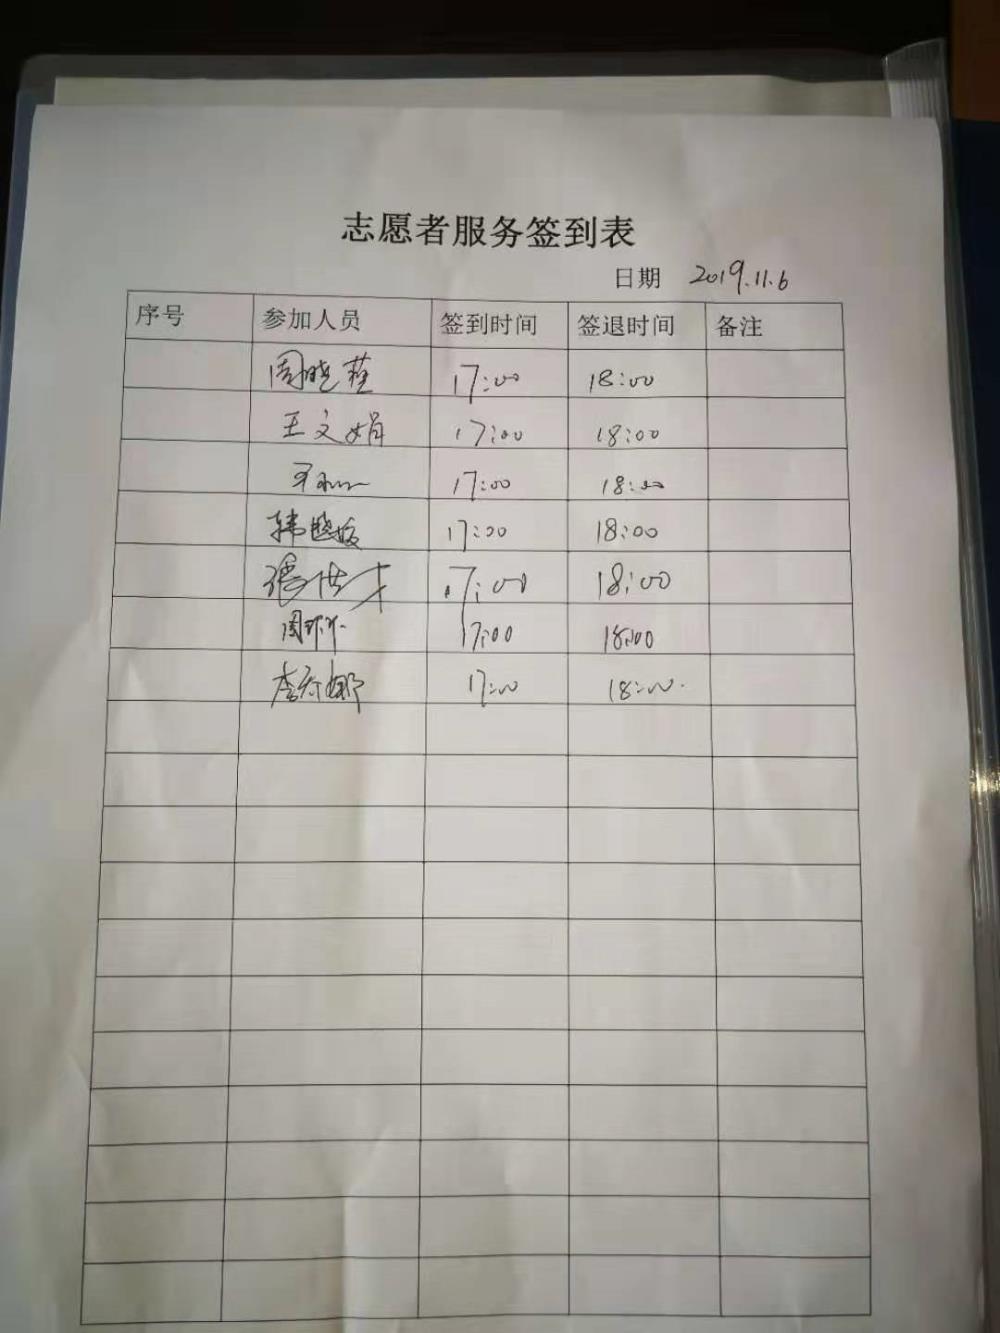 志愿者服务签到表
日期 2019.11.6
序号 参加人员 签到时间 签退时间 备注
周晓 17:00 18:00
王文娟 17:00 18:00
王 17:00 18:00
韩晓 17:00 18:00
张世才 17:00 18:00
周 17:00 18:00
李 娜 17:00 18:00